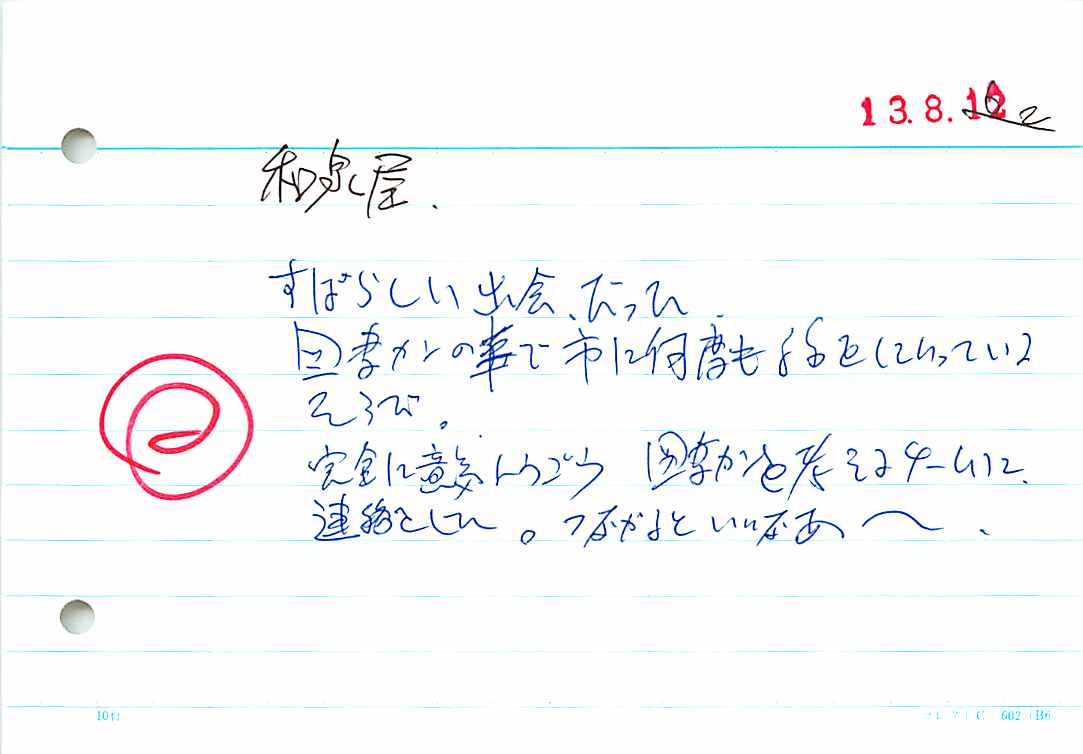 13.8.12
和泉屋.
すばらしい出会、だった.
図書かんの事で市に何度も話をしに行っている
そうだ。
完全に意気とうごう 図書かんを考えるチームに、
連絡をした。つながるといいなあ〜、
10行 C 602 B6